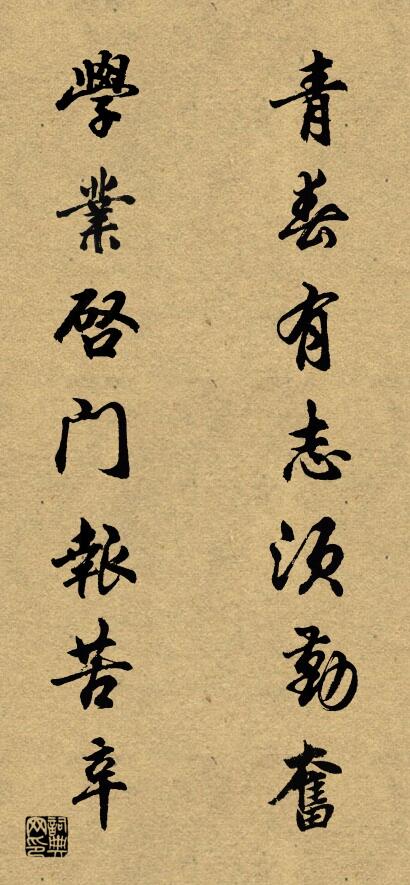 青春有志須勤奮
學業啓門報苦辛
詞典网印